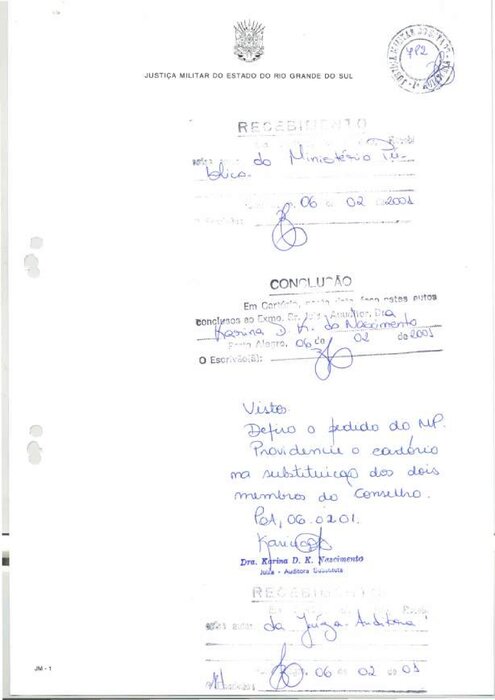 JUSTIÇA MILITAR DO ESTADO DO RIO GRANDE DO SUL
482
RECEBIMENTO
autos do Ministério Pú-
blico.
06 02 2001
CONCLUSÃO
Em Cartório, nesta data faço estes autos
conclusos ao Exmo. Sr. Juiz - Auditor, Dra
Karina D. K. do Nascimento
Porto Alegre, 06 de 02 de 2001
O Escrivão(ã):
Vistos
Defiro o pedido do MP.
Providencie o cartório
na substituição dos dois
membros do Conselho.
PoA, 06.02.01.
Dra. Karina D. K. Nascimento
Juíza - Auditora Substituta
RECEBIMENTO
autos da Juíza-Auditora
06 02 01
JM - 1